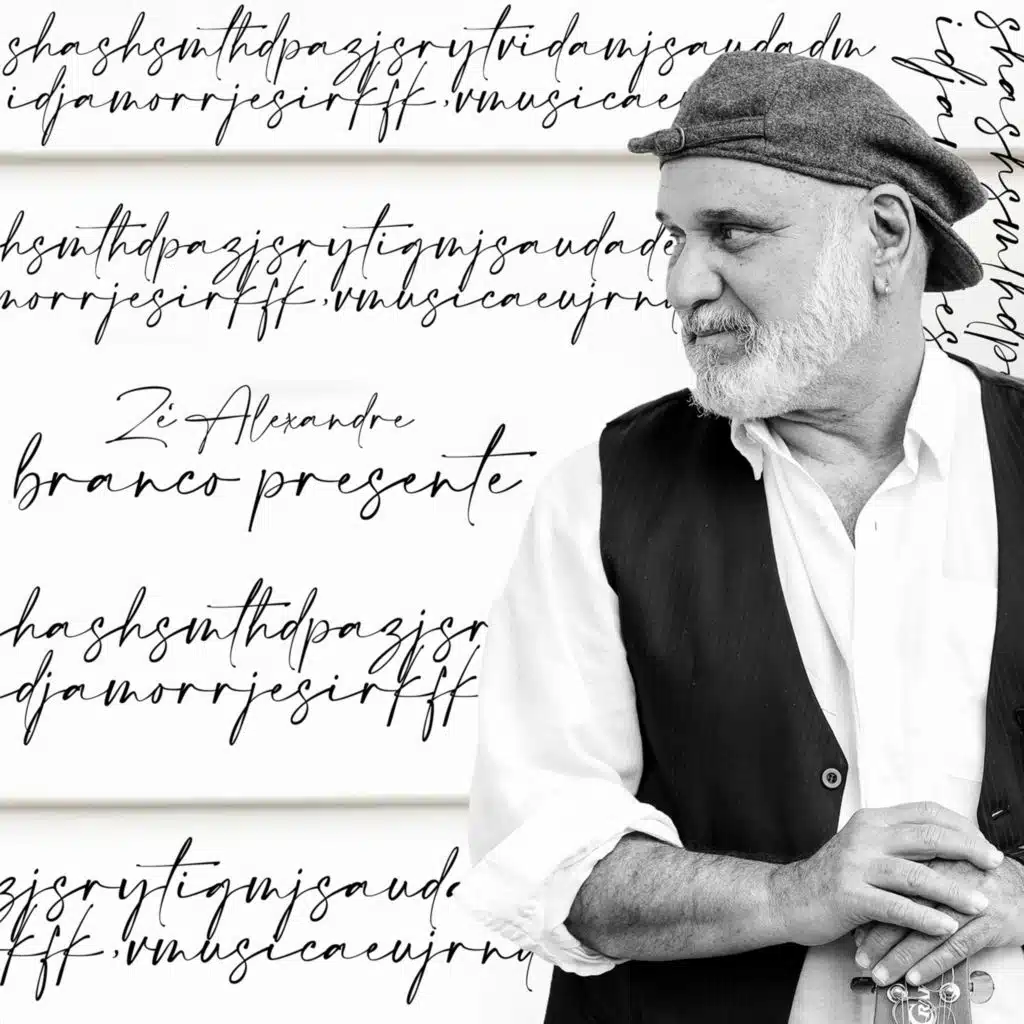 shashsmthdpazjsrytvidamjsaudadm
idjamorrjesirkfk,vmusicae
hsmthdpazjsrytigmjsaudade
morrjesirkfk,vmusicaeujrn
Zé Alexandre
branco presente
hashsmthdpazjsr
djamorrjesirkfk
zjsrytigmjsaud
kfk,vmusicaeujrn
shashsmthdp
idja
es